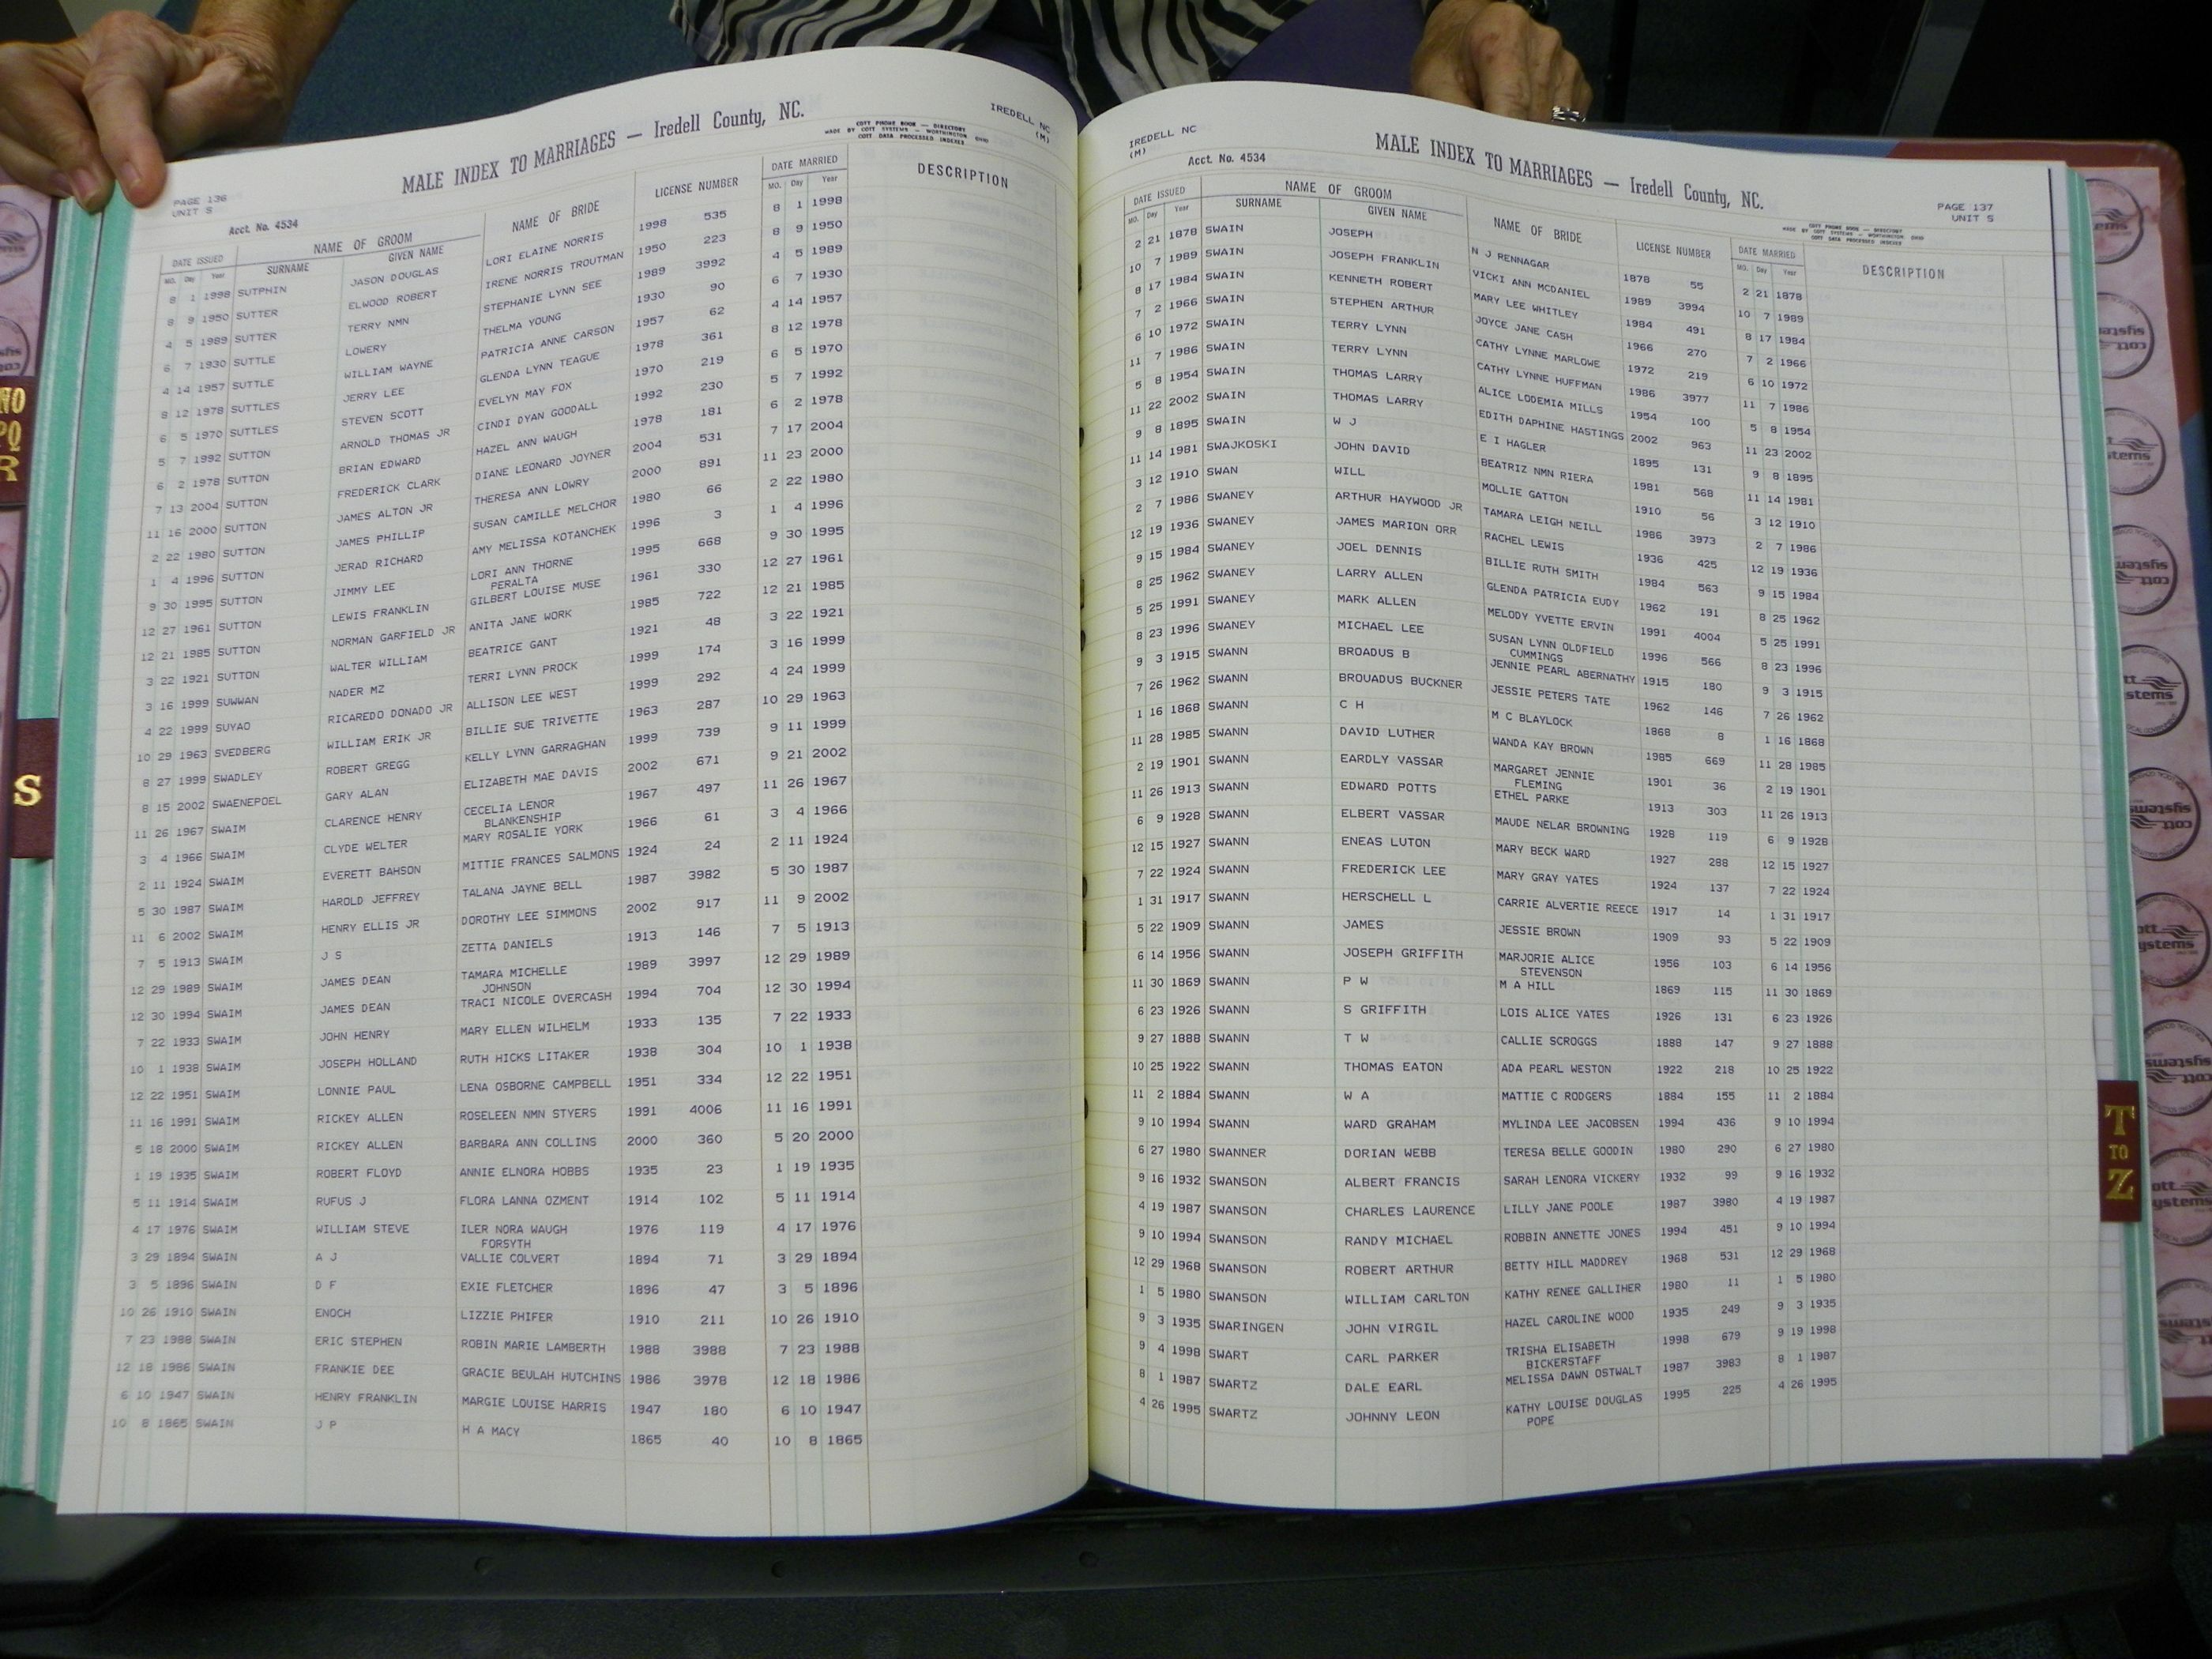 PAGE 136
UNIT S
MALE INDEX TO MARRIAGES — Iredell County, NC.
COTT PHONE BOOK — DIRECTORY
MADE BY COTT SYSTEMS — WORTHINGTON OHIO
COTT DATA PROCESSED INDEXER
IREDELL NC
(M)
Acct. No. 4534
DATE ISSUED NAME OF GROOM NAME OF BRIDE LICENSE NUMBER DATE MARRIED DESCRIPTION
MO. Day Year SURNAME GIVEN NAME MO. Day Year
8 1 1998 SUTPHIN JASON DOUGLAS LORI ELAINE NORRIS 1998 535 8 1 1998
8 9 1950 SUTTER ELWOOD ROBERT IRENE NORRIS TROUTMAN 1950 223 8 9 1950
4 5 1989 SUTTER TERRY NMN STEPHANIE LYNN SEE 1989 3992 4 5 1989
6 7 1930 SUTTLE LOWERY THELMA YOUNG 1930 90 6 7 1930
4 14 1957 SUTTLE WILLIAM WAYNE PATRICIA ANNE CARSON 1957 62 4 14 1957
8 12 1978 SUTTLES JERRY LEE GLENDA LYNN TEAGUE 1978 361 8 12 1978
6 5 1970 SUTTLES STEVEN SCOTT EVELYN MAY FOX 1970 219 6 5 1970
5 7 1992 SUTTON ARNOLD THOMAS JR CINDI DYAN GOODALL 1992 230 5 7 1992
6 2 1978 SUTTON BRIAN EDWARD HAZEL ANN WAUGH 1978 181 6 2 1978
7 13 2004 SUTTON FREDERICK CLARK DIANE LEONARD JOYNER 2004 531 7 17 2004
11 16 2000 SUTTON JAMES ALTON JR THERESA ANN LOWRY 2000 891 11 23 2000
2 22 1980 SUTTON JAMES PHILLIP SUSAN CAMILLE MELCHOR 1980 66 2 22 1980
1 4 1996 SUTTON JERAD RICHARD AMY MELISSA KOTANCHEK 1996 3 1 4 1996
9 30 1995 SUTTON JIMMY LEE LORI ANN THORNE 1995 668 9 30 1995
PERALTA
12 27 1961 SUTTON LEWIS FRANKLIN GILBERT LOUISE MUSE 1961 330 12 27 1961
12 21 1985 SUTTON NORMAN GARFIELD JR ANITA JANE WORK 1985 722 12 21 1985
3 22 1921 SUTTON WALTER WILLIAM BEATRICE GANT 1921 48 3 22 1921
3 16 1999 SUWWAN NADER MZ TERRI LYNN PROCK 1999 174 3 16 1999
4 22 1999 SUYAO RICAREDO DONADO JR ALLISON LEE WEST 1999 292 4 24 1999
10 29 1963 SVEDBERG WILLIAM ERIK JR BILLIE SUE TRIVETTE 1963 287 10 29 1963
8 27 1999 SWADLEY ROBERT GREGG KELLY LYNN GARRAGHAN 1999 739 9 11 1999
8 15 2002 SWAENEPOEL GARY ALAN ELIZABETH MAE DAVIS 2002 671 9 21 2002
11 26 1967 SWAIM CLARENCE HENRY CECELIA LENOR 1967 497 11 26 1967
BLANKENSHIP
3 4 1966 SWAIM CLYDE WELTER MARY ROSALIE YORK 1966 61 3 4 1966
2 11 1924 SWAIM EVERETT BAHSON MITTIE FRANCES SALMONS 1924 24 2 11 1924
5 30 1987 SWAIM HAROLD JEFFREY TALANA JAYNE BELL 1987 3982 5 30 1987
11 6 2002 SWAIM HENRY ELLIS JR DOROTHY LEE SIMMONS 2002 917 11 9 2002
7 5 1913 SWAIM J S ZETTA DANIELS 1913 146 7 5 1913
12 29 1989 SWAIM JAMES DEAN TAMARA MICHELLE 1989 3997 12 29 1989
JOHNSON
12 30 1994 SWAIM JAMES DEAN TRACI NICOLE OVERCASH 1994 704 12 30 1994
7 22 1933 SWAIM JOHN HENRY MARY ELLEN WILHELM 1933 135 7 22 1933
10 1 1938 SWAIM JOSEPH HOLLAND RUTH HICKS LITAKER 1938 304 10 1 1938
12 22 1951 SWAIM LONNIE PAUL LENA OSBORNE CAMPBELL 1951 334 12 22 1951
11 16 1991 SWAIM RICKEY ALLEN ROSELEEN NMN STYERS 1991 4006 11 16 1991
5 18 2000 SWAIM RICKEY ALLEN BARBARA ANN COLLINS 2000 360 5 20 2000
1 19 1935 SWAIM ROBERT FLOYD ANNIE ELNORA HOBBS 1935 23 1 19 1935
5 11 1914 SWAIM RUFUS J FLORA LANNA OZMENT 1914 102 5 11 1914
4 17 1976 SWAIM WILLIAM STEVE ILER NORA WAUGH 1976 119 4 17 1976
FORSYTH
3 29 1894 SWAIN A J VALLIE COLVERT 1894 71 3 29 1894
3 5 1896 SWAIN D F EXIE FLETCHER 1896 47 3 5 1896
10 26 1910 SWAIN ENOCH LIZZIE PHIFER 1910 211 10 26 1910
7 23 1988 SWAIN ERIC STEPHEN ROBIN MARIE LAMBERTH 1988 3988 7 23 1988
12 18 1986 SWAIN FRANKIE DEE GRACIE BEULAH HUTCHINS 1986 3978 12 18 1986
6 10 1947 SWAIN HENRY FRANKLIN MARGIE LOUISE HARRIS 1947 180 6 10 1947
10 8 1865 SWAIN J P H A MACY 1865 40 10 8 1865
IREDELL NC
(M)
MALE INDEX TO MARRIAGES — Iredell County, NC.
PAGE 137
UNIT S
Acct. No. 4534
COTT PHONE BOOK — DIRECTORY
MADE BY COTT SYSTEMS — WORTHINGTON OHIO
COTT DATA PROCESSED INDEXER
DATE ISSUED NAME OF GROOM NAME OF BRIDE LICENSE NUMBER DATE MARRIED DESCRIPTION
MO. Day Year SURNAME GIVEN NAME MO. Day Year
2 21 1878 SWAIN JOSEPH N J RENNAGAR 1878 55 2 21 1878
10 7 1989 SWAIN JOSEPH FRANKLIN VICKI ANN MCDANIEL 1989 3994 10 7 1989
8 17 1984 SWAIN KENNETH ROBERT MARY LEE WHITLEY 1984 491 8 17 1984
7 2 1966 SWAIN STEPHEN ARTHUR JOYCE JANE CASH 1966 270 7 2 1966
6 10 1972 SWAIN TERRY LYNN CATHY LYNNE MARLOWE 1972 219 6 10 1972
11 7 1986 SWAIN TERRY LYNN CATHY LYNNE HUFFMAN 1986 3977 11 7 1986
5 8 1954 SWAIN THOMAS LARRY ALICE LODEMIA MILLS 1954 100 5 8 1954
11 22 2002 SWAIN THOMAS LARRY EDITH DAPHINE HASTINGS 2002 963 11 23 2002
9 8 1895 SWAIN W J E I HAGLER 1895 131 9 8 1895
11 14 1981 SWAJKOSKI JOHN DAVID BEATRIZ NMN RIERA 1981 568 11 14 1981
3 12 1910 SWAN WILL MOLLIE GATTON 1910 56 3 12 1910
2 7 1986 SWANEY ARTHUR HAYWOOD JR TAMARA LEIGH NEILL 1986 3973 2 7 1986
12 19 1936 SWANEY JAMES MARION ORR RACHEL LEWIS 1936 425 12 19 1936
9 15 1984 SWANEY JOEL DENNIS BILLIE RUTH SMITH 1984 563 9 15 1984
8 25 1962 SWANEY LARRY ALLEN GLENDA PATRICIA EUDY 1962 191 8 25 1962
5 25 1991 SWANEY MARK ALLEN MELODY YVETTE ERVIN 1991 4004 5 25 1991
8 23 1996 SWANEY MICHAEL LEE SUSAN LYNN OLDFIELD 1996 566 8 23 1996
CUMMINGS
9 3 1915 SWANN BROADUS B JENNIE PEARL ABERNATHY 1915 180 9 3 1915
7 26 1962 SWANN BROUADUS BUCKNER JESSIE PETERS TATE 1962 146 7 26 1962
1 16 1868 SWANN C H M C BLAYLOCK 1868 8 1 16 1868
11 28 1985 SWANN DAVID LUTHER WANDA KAY BROWN 1985 669 11 28 1985
2 19 1901 SWANN EARDLY VASSAR MARGARET JENNIE 1901 36 2 19 1901
FLEMING
11 26 1913 SWANN EDWARD POTTS ETHEL PARKE 1913 303 11 26 1913
6 9 1928 SWANN ELBERT VASSAR MAUDE NELAR BROWNING 1928 119 6 9 1928
12 15 1927 SWANN ENEAS LUTON MARY BECK WARD 1927 288 12 15 1927
7 22 1924 SWANN FREDERICK LEE MARY GRAY YATES 1924 137 7 22 1924
1 31 1917 SWANN HERSCHELL L CARRIE ALVERTIE REECE 1917 14 1 31 1917
5 22 1909 SWANN JAMES JESSIE BROWN 1909 93 5 22 1909
6 14 1956 SWANN JOSEPH GRIFFITH MARJORIE ALICE 1956 103 6 14 1956
STEVENSON
11 30 1869 SWANN P W M A HILL 1869 115 11 30 1869
6 23 1926 SWANN S GRIFFITH LOIS ALICE YATES 1926 131 6 23 1926
9 27 1888 SWANN T W CALLIE SCROGGS 1888 147 9 27 1888
10 25 1922 SWANN THOMAS EATON ADA PEARL WESTON 1922 218 10 25 1922
11 2 1884 SWANN W A MATTIE C RODGERS 1884 155 11 2 1884
9 10 1994 SWANN WARD GRAHAM MYLINDA LEE JACOBSEN 1994 436 9 10 1994
6 27 1980 SWANNER DORIAN WEBB TERESA BELLE GOODIN 1980 290 6 27 1980
9 16 1932 SWANSON ALBERT FRANCIS SARAH LENORA VICKERY 1932 99 9 16 1932
4 19 1987 SWANSON CHARLES LAURENCE LILLY JANE POOLE 1987 3980 4 19 1987
9 10 1994 SWANSON RANDY MICHAEL ROBBIN ANNETTE JONES 1994 451 9 10 1994
12 29 1968 SWANSON ROBERT ARTHUR BETTY HILL MADDREY 1968 531 12 29 1968
1 5 1980 SWANSON WILLIAM CARLTON KATHY RENEE GALLIHER 1980 11 1 5 1980
9 3 1935 SWARINGEN JOHN VIRGIL HAZEL CAROLINE WOOD 1935 249 9 3 1935
9 4 1998 SWART CARL PARKER TRISHA ELISABETH 1998 679 9 19 1998
BICKERSTAFF
8 1 1987 SWARTZ DALE EARL MELISSA DAWN OSTWALT 1987 3983 8 1 1987
4 26 1995 SWARTZ JOHNNY LEON KATHY LOUISE DOUGLAS 1995 225 4 26 1995
POPE
NO
PQ
R
S
T
TO
Z
cott
systems